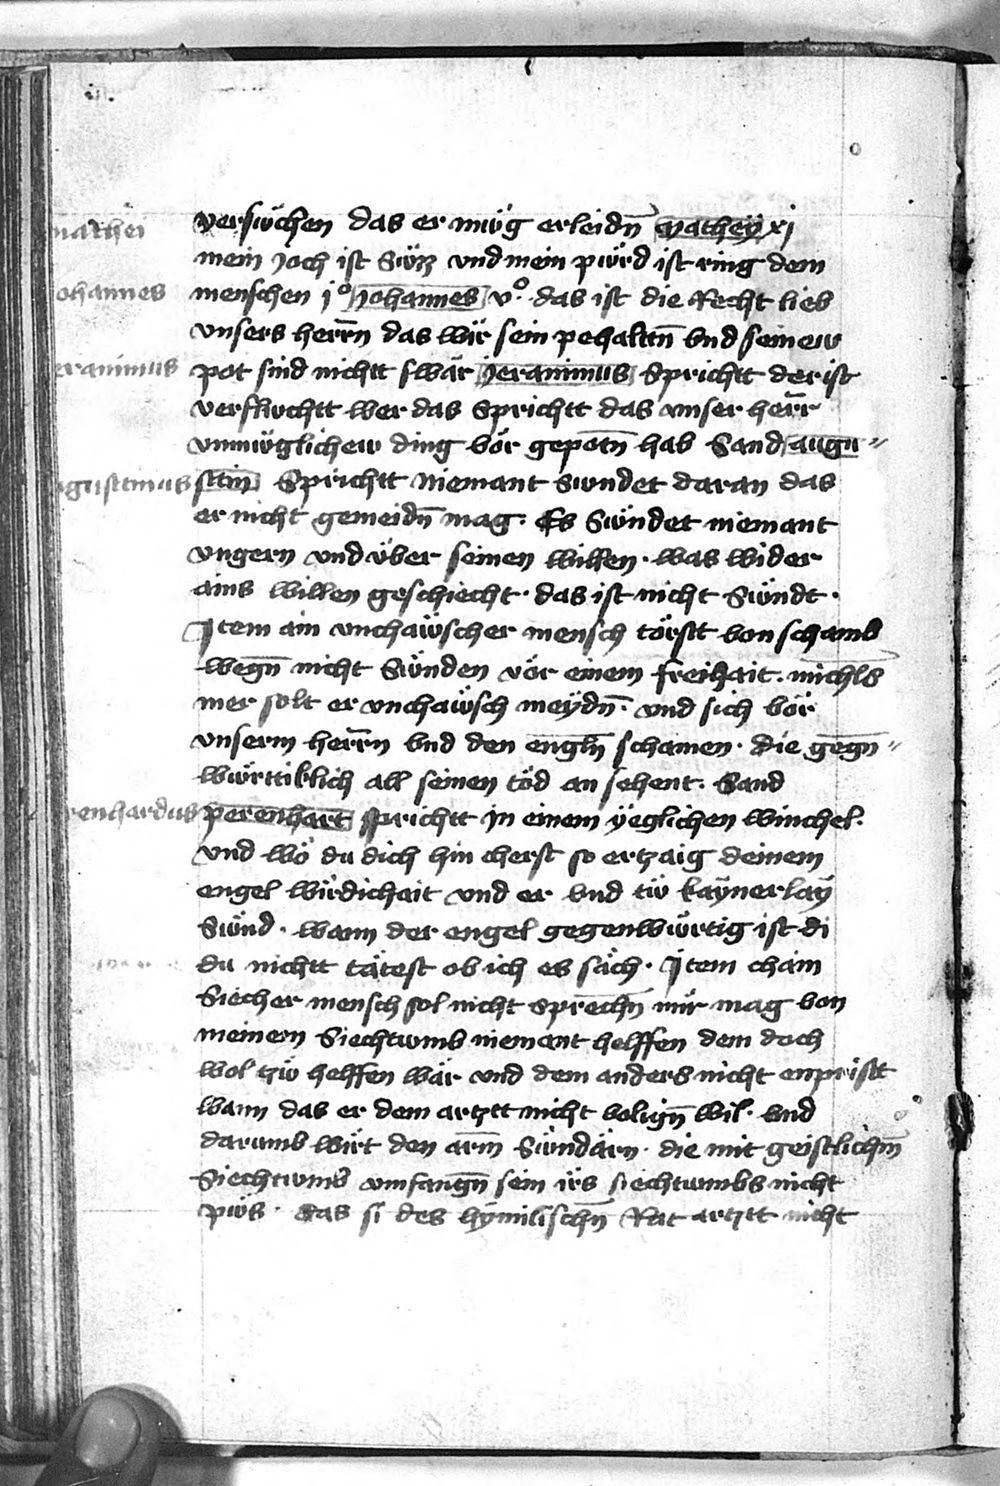 mathei
versuͦchen das er mu̇g erleidn̄ mathey xj
mein Joch ist Su̇zz vnd mein pu̇rd ist ring dem
ohannes
menschen jº Johannes vº. das ist die Recht lieb
vnsers herr̄n das wir sein pehaltn̄ vnd seinew
eranimus
pot sind nichtt swär Jeranimus Sprichtt der ist
verflucht wer das Sprichtt das vnser her̄r
vnmu̇glichew ding vör gepotn̄ hab Sand augu〃
gustinus
stin Sprichtt Niemant Sundet daran das
er nicht gemeidn̄ mag. Es Su̇ndet niemant
vngern vnd u̇ber seinen willen. was wider
ains willen geschiecht. das ist nicht Su̇ndt.
Jtem ain vnchawscher mensch törstt von schamb
wegn̄ nicht Su̇nden vör einem freihait. michls
mer solt er vnchawsch meydn̄. vnd sich vör
vnserm herr̄n vnd den engln̄ schamen. die gegn̄〃
wu̇rttiklich all seinen töd an sehent. Sand
renhardus
perenhart sprichtt in einem yeglichen winchel.
vnd wö du dich hin cherst so ertzaig deinem
engel wirdichait vnd er vnd tu̇ kaynerlay
Su̇nd. wann der engel gegenwu̇rtig ist di
du nichtt tätest ob ich es säch. Jtem chain
Siecher mensch sol nicht sprechn̄ mir mag von
meinem Siechtumb niemant helffen dem doch
wol tzu̇ helffen wär vnd dem anders nicht enpristt
wann das er dem artztt nicht volign̄ wil. vnd
darumb wirt den arm̄ Su̇ndärn. die mit geistlichm̄
Siechtumb vmfangn̄ sein irs siechtumbs nicht
pu̇s. das si des hymilischn̄ Rat artztt nicht